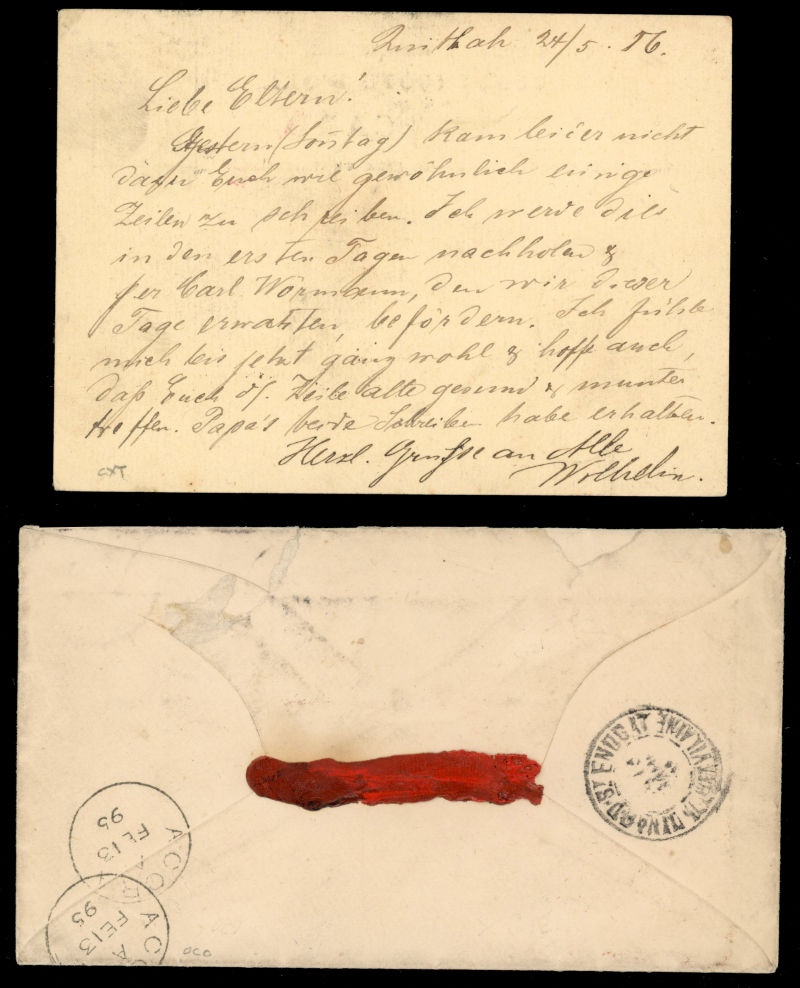 Quittah 24/5. 86.
Liebe Eltern!
Gestern (Sontag) kam leider nicht
dazu Euch wie gewöhnlich einige
Zeilen zu schreiben. Ich werde dies
in den ersten Tagen nachholen &
per Carl Wörmann, den wir dieser
Tage erwarten, befördern. Ich fühle
mich bis jetzt ganz wohl & hoffe auch,
daß Euch ds. Zeile alle gesund & munter
treffen. Papa's beide Schreiben habe erhalten.
Herzl. Grüsse an Alle
Wilhelm.
CXT
ACC
A
FE 13
95
ACC
A
FE 13
95
OCO